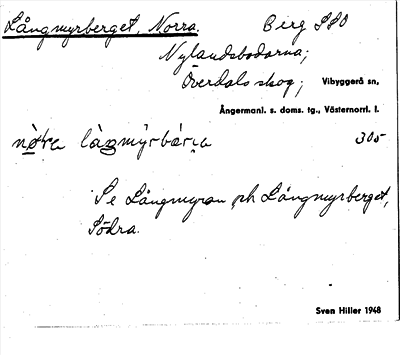 Långmyrberget, Norra. Berg SSO
Nylandsbodarna;
Överdals skog; Vibyggerå sn,
Ångermanl. s. doms. tg., Västernorrl. l.
nò̱ra làgmy̆rbár̨ia 305
Se Långmyran och Långmyrberget,
Södra.
Sven Hiller 1948